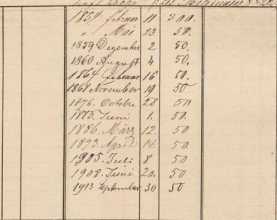 1857 Februar 11 500.
" Mai 23 50.
1859 Dezember 2 50.
1860 August 4 50.
1864 Februar 16 50.
1868 November 19 50
1876 Octobr 28 50
1883 Juni 1. 50.
1886. März 12. 50.
1892 April 50.
1905. Juli 8 50.
1908. Juni 20. 50.
1913 September 30 50